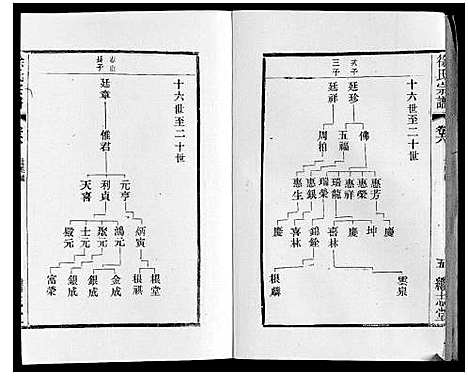 徐氏宗譜
卷六
五
繼志堂
十六世至二十世
天子
三子
廷珍
廷祥
佛
五福
周柏
惠芳
惠榮
惠祥
瑞龍
瑞榮
惠銀
惠生
慶
坤
慶
喜林
錦銓
喜林
慶
雲泉
根麟
十六世至二十世
泰山
長子
廷章
倠君
元亨
利貞
天喜
炳寅
鴻元
聚元
士元
殿元
根堂
根祺
金成
銀成
銀成
富榮